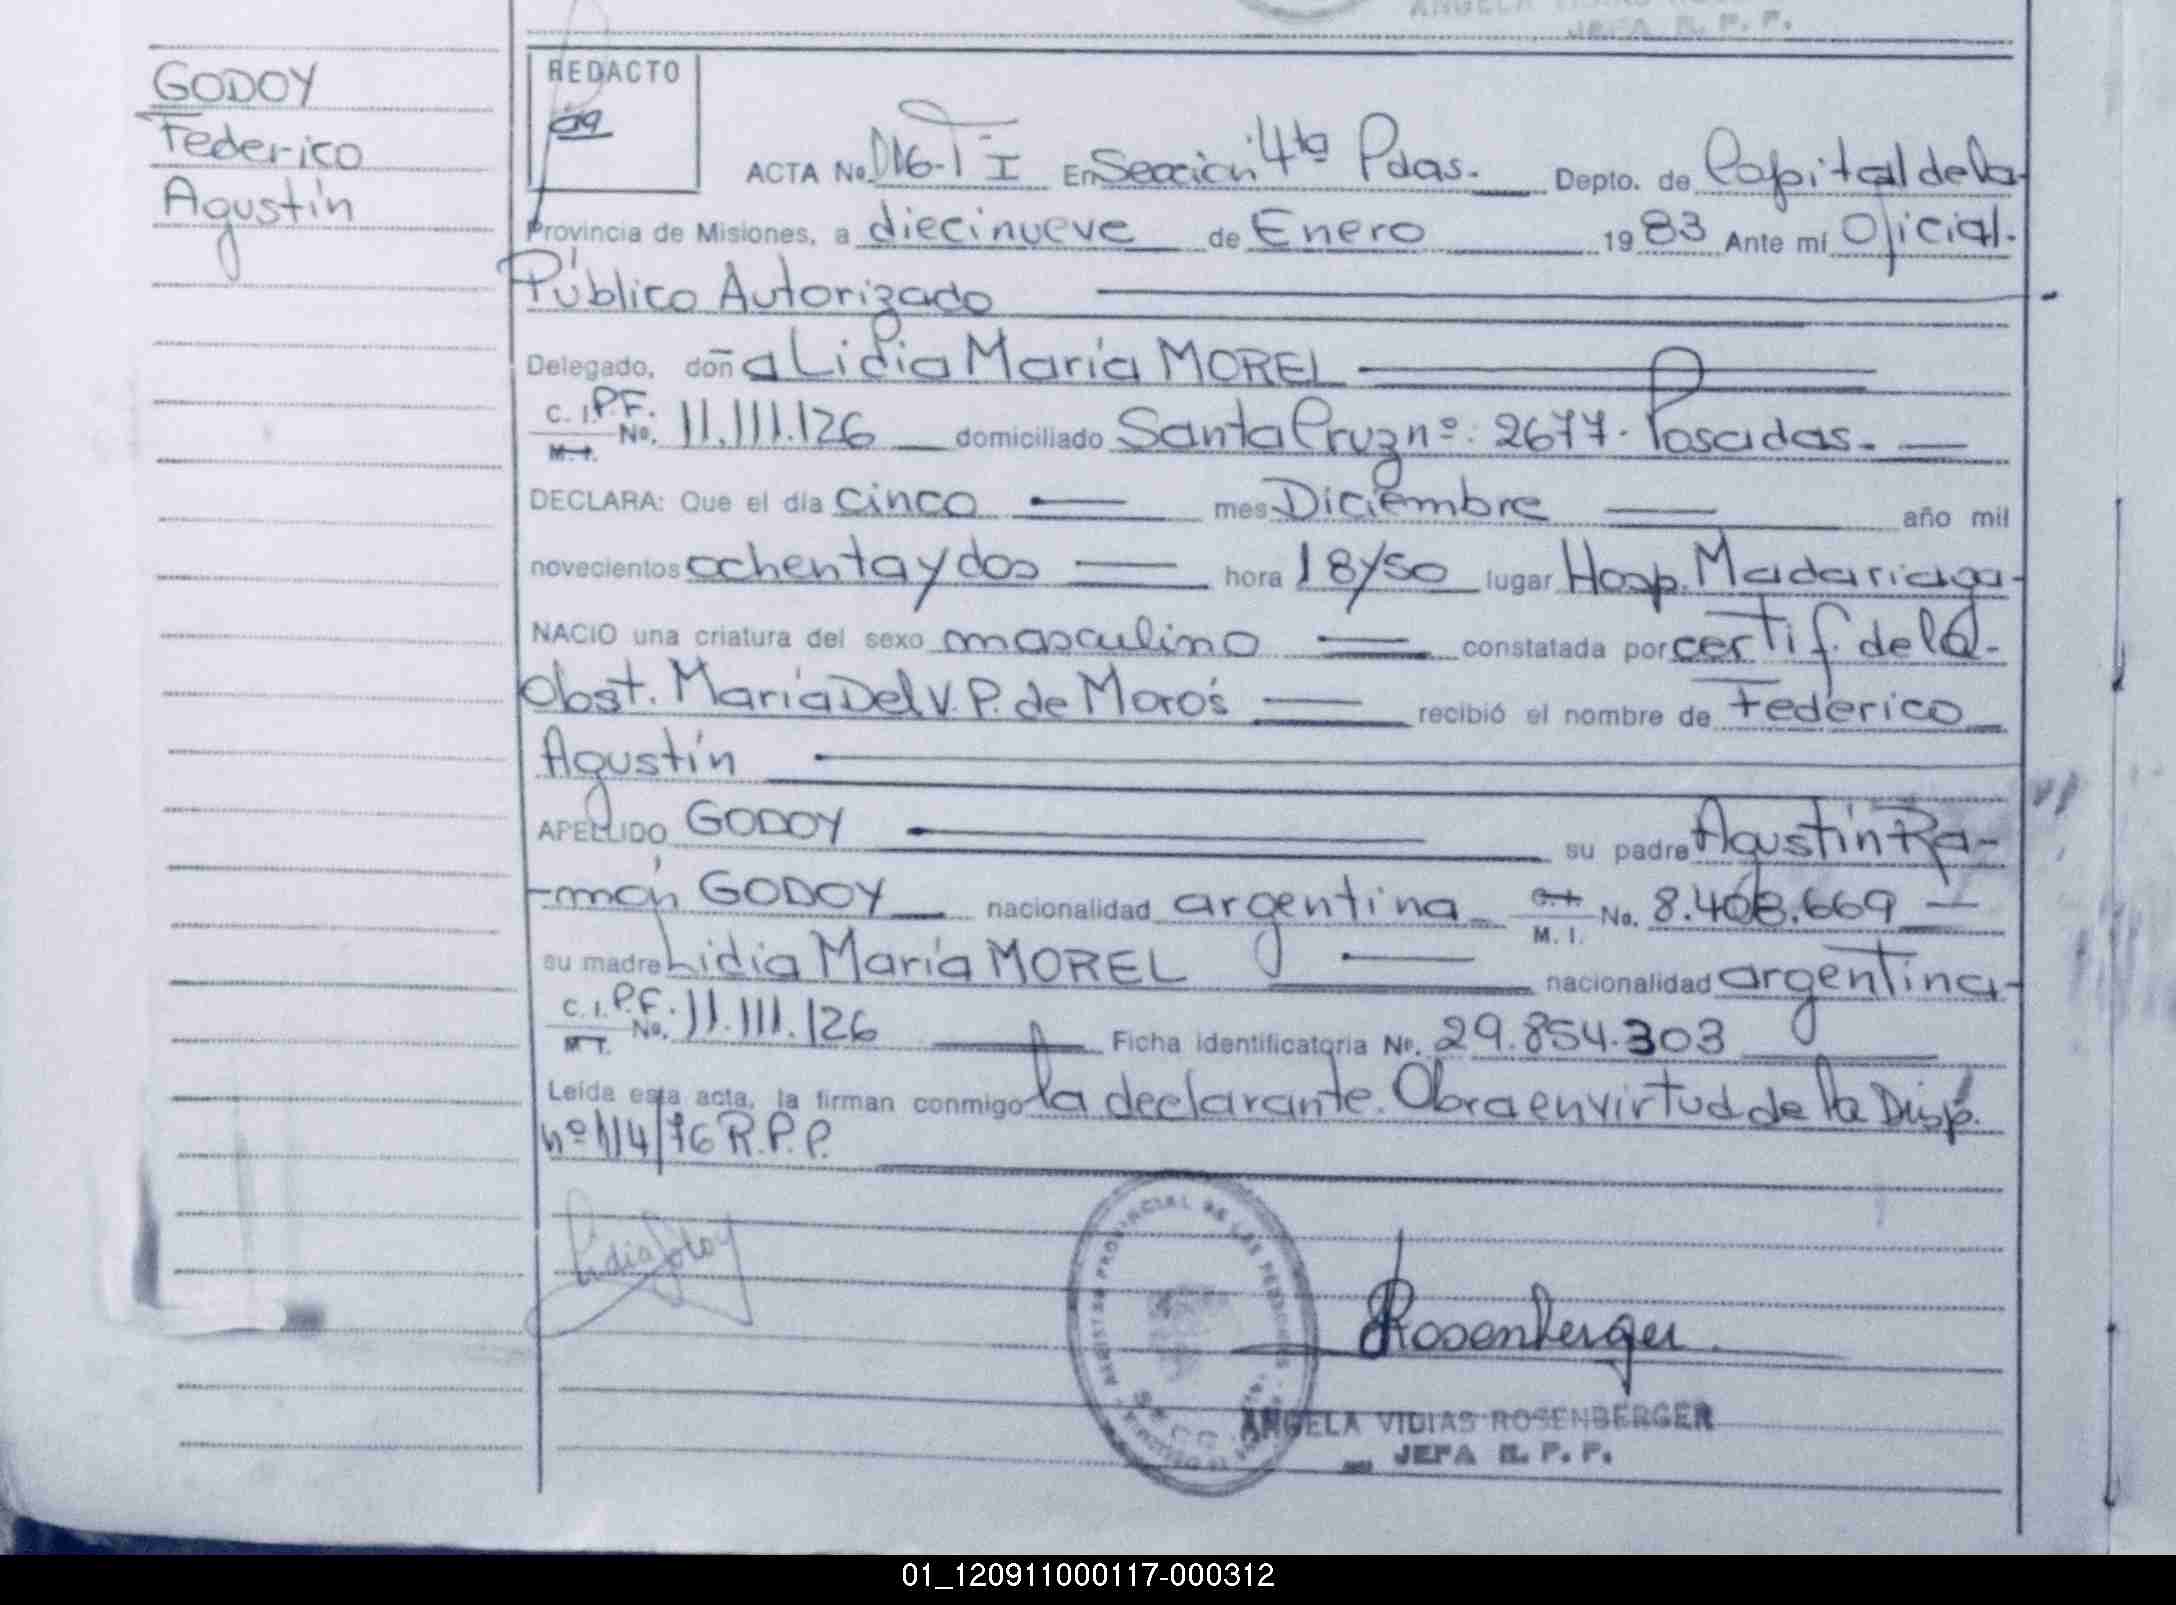 JEFA R. P. P.
GODOY
Federico
Agustín
REDACTO
ACTA No. 116-T I En Sección 4ta Pdas. Depto. de Capital de la
Provincia de Misiones, a diecinueve de Enero 1983 Ante mí Oficial
Público Autorizado
Delegado, doña Lidia María MOREL
C. I. P.F. No. 11.111.126 domiciliado Santa Cruz nº: 2677. Posadas.
M. I.
DECLARA: Que el día cinco mes Diciembre año mil
novecientos ochenta y dos hora 18y50 lugar Hosp. Madariaga
NACIO una criatura del sexo masculino constatada por certif. de la
Obst. María Del V. P. de Moros recibió el nombre de Federico
Agustín
APELLIDO GODOY su padre Agustín Ra-
-món GODOY nacionalidad argentina C. I. No. 8.408.669
M. I.
su madre Lidia María MOREL nacionalidad argentina
C. I. P.F. No. 11.111.126 Ficha identificatoria No. 29.854.303
M. I.
Leída esta acta, la firman conmigo la declarante. Obra en virtud de la Disp.
nº 114/76 R.P.P.
Rosenberger
ANGELA VIDIAS ROSENBERGER
JEFA R. P. P.
01_120911000117-000312